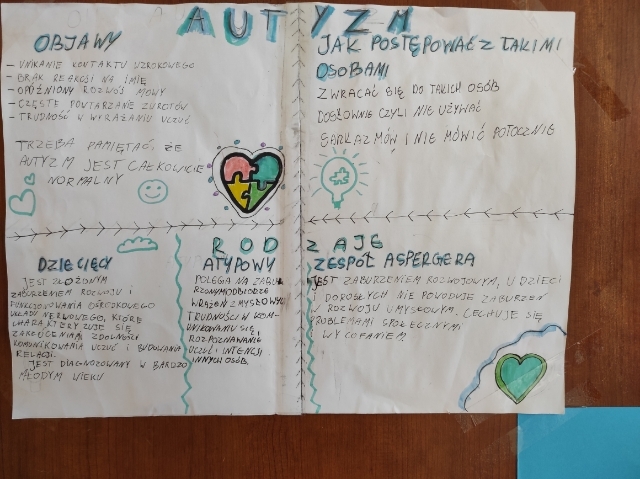 AUTYZM
OBJAWY
- UNIKANIE KONTAKTU WZROKOWEGO
- BRAK REAKCJI NA IMIĘ
- OPÓŹNIONY ROZWÓJ MOWY
- CZĘSTE POWTARZANE ZWROTÓW
- TRUDNOŚĆ W WYRAŻANIU UCZUĆ
TRZEBA PAMIĘTAĆ, ŻE
AUTYZM JEST CAŁKOWICIE
NORMALNY
JAK POSTĘPOWAĆ Z TAKIMI
OSOBAMI
ZWRACAĆ SIĘ DO TAKICH OSÓB
DOSŁOWNIE CZYLI NIE UŻYWAĆ
SARKAZMÓW I NIE MÓWIĆ POTOCZNIE
RODZAJE
DZIECIĘCY
JEST ZŁOŻONYM
ZABURZENIEM ROZWOJU I
FUNKCJONOWANIA OŚRODKOWEGO
UKŁADU NERWOWEGO, KTÓRE
CHARAKTERYZUJE SIĘ
ZAKŁÓCENIAMI ZDOLNOŚCI
KOMUNIKOWANIA UCZUĆ I BUDOWANIA
RELACJI.
JEST DIAGNOZOWANY W BARDZO
MŁODYM WIEKU
ATYPOWY
POLEGA NA ZABU-
RZONYM ODBIORZE
WRAŻEŃ ZMYSŁOWYCH
TRUDNOŚCI W KOM-
UNIKOWANIU SIĘ,
ROZPOZNAWANIE
UCZUĆ I INTENCJI
INNYCH OSÓB.
ZESPÓŁ ASPERGERA
JEST ZABURZENIEM ROZWOJOWYM, U DZIECI
I DOROSŁYCH NIE POWODUJE ZABURZEŃ
W ROZWOJU UMYSŁOWYM. CECHUJE SIĘ
PROBLEMAMI SPOŁECZNYMI
I WYCOFANIEM